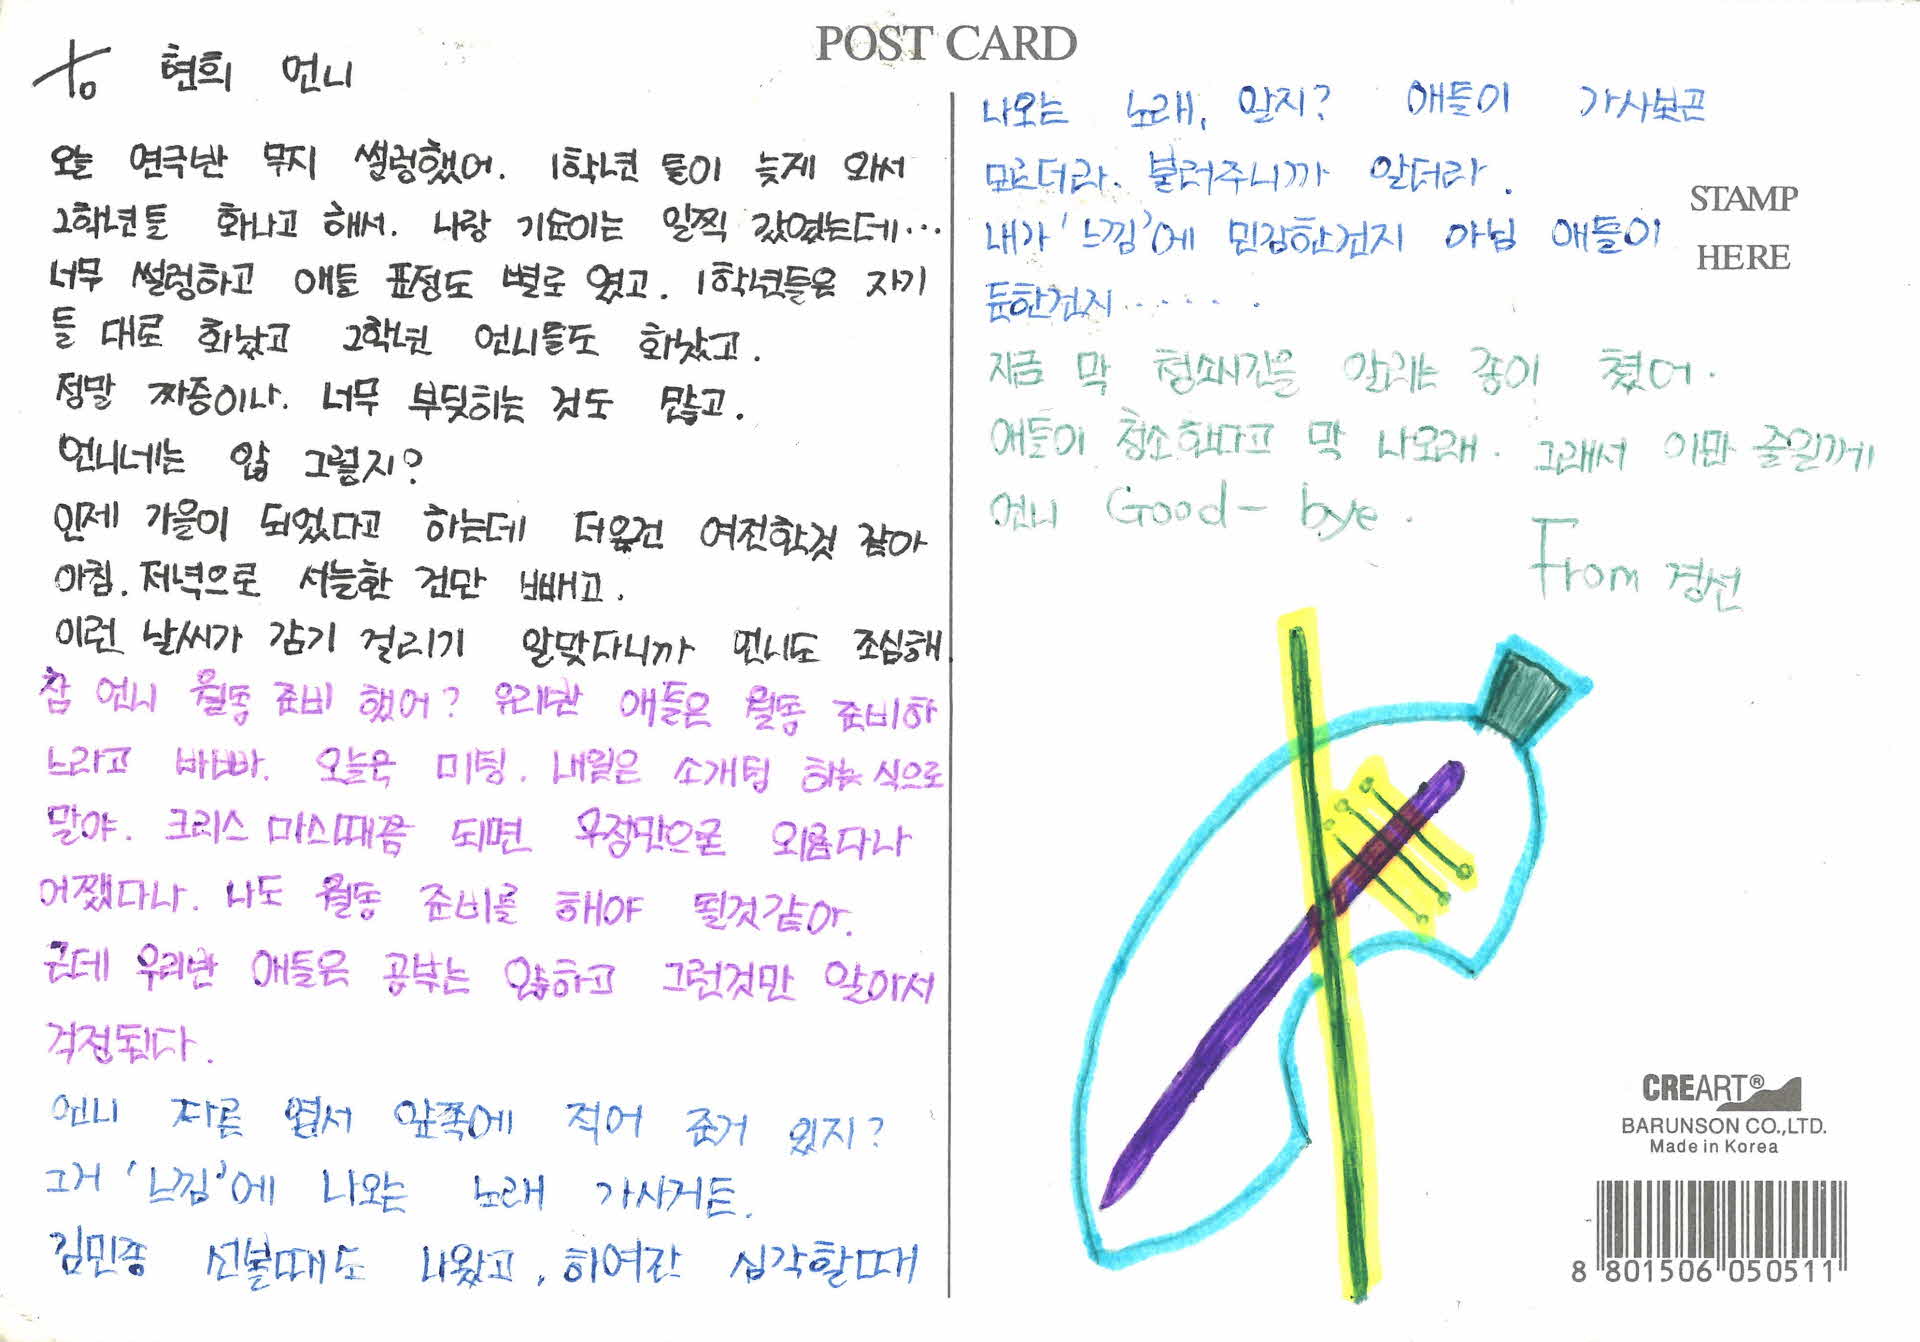 POST CARD
to 현희 언니
오늘 연극반 무지 썰렁했어. 1학년 들이 늦게 와서
2학년들 화나고 해서. 나랑 기순이는 일찍 갔었는데...
너무 썰렁하고 애들 표정도 별로 였고. 1학년들은 자기
들 대로 화났고 2학년 언니들도 화났고.
정말 짜증이나. 너무 부딪히는 것도 많고.
언니네는 않 그렇지?
인제 가을이 되었다고 하는데 더운건 여전한것 같아
아침. 저녁으로 서늘한 건만 빼고.
이런 날씨가 감기 걸리기 알맞다니까 언니도 조심해
참 언니 월동 준비 했어? 우리반 애들은 월동 준비하
느라고 바빠. 오늘은 미팅. 내일은 소개팅 하는 식으로
말야. 크리스마스때쯤 되면 우정만으론 외롭다나
어쨌다나. 나도 월동 준비를 해야 될것같아.
근데 우리반 애들은 공부는 않하고 그런것만 알아서
걱정된다.
언니 따른 엽서 앞쪽에 적어 준거 있지?
그거 '느낌'에 나오는 노래 가사거든.
김민종 선볼때도 나왔고, 하여간 심각할때
나오는 노래, 알지? 애들이 가사보곤
모르더라. 불러주니까 알더라.
내가 '느낌'에 민감한건지 아님 애들이
둔한건지......
지금 막 청소시간을 알리는 종이 쳤어.
애들이 청소한다고 막 나오래. 그래서 이만 줄일께
언니 Good-bye.
From 경선
STAMP
HERE
CREART®
BARUNSON CO.,LTD.
Made in Korea
8 801506 050511